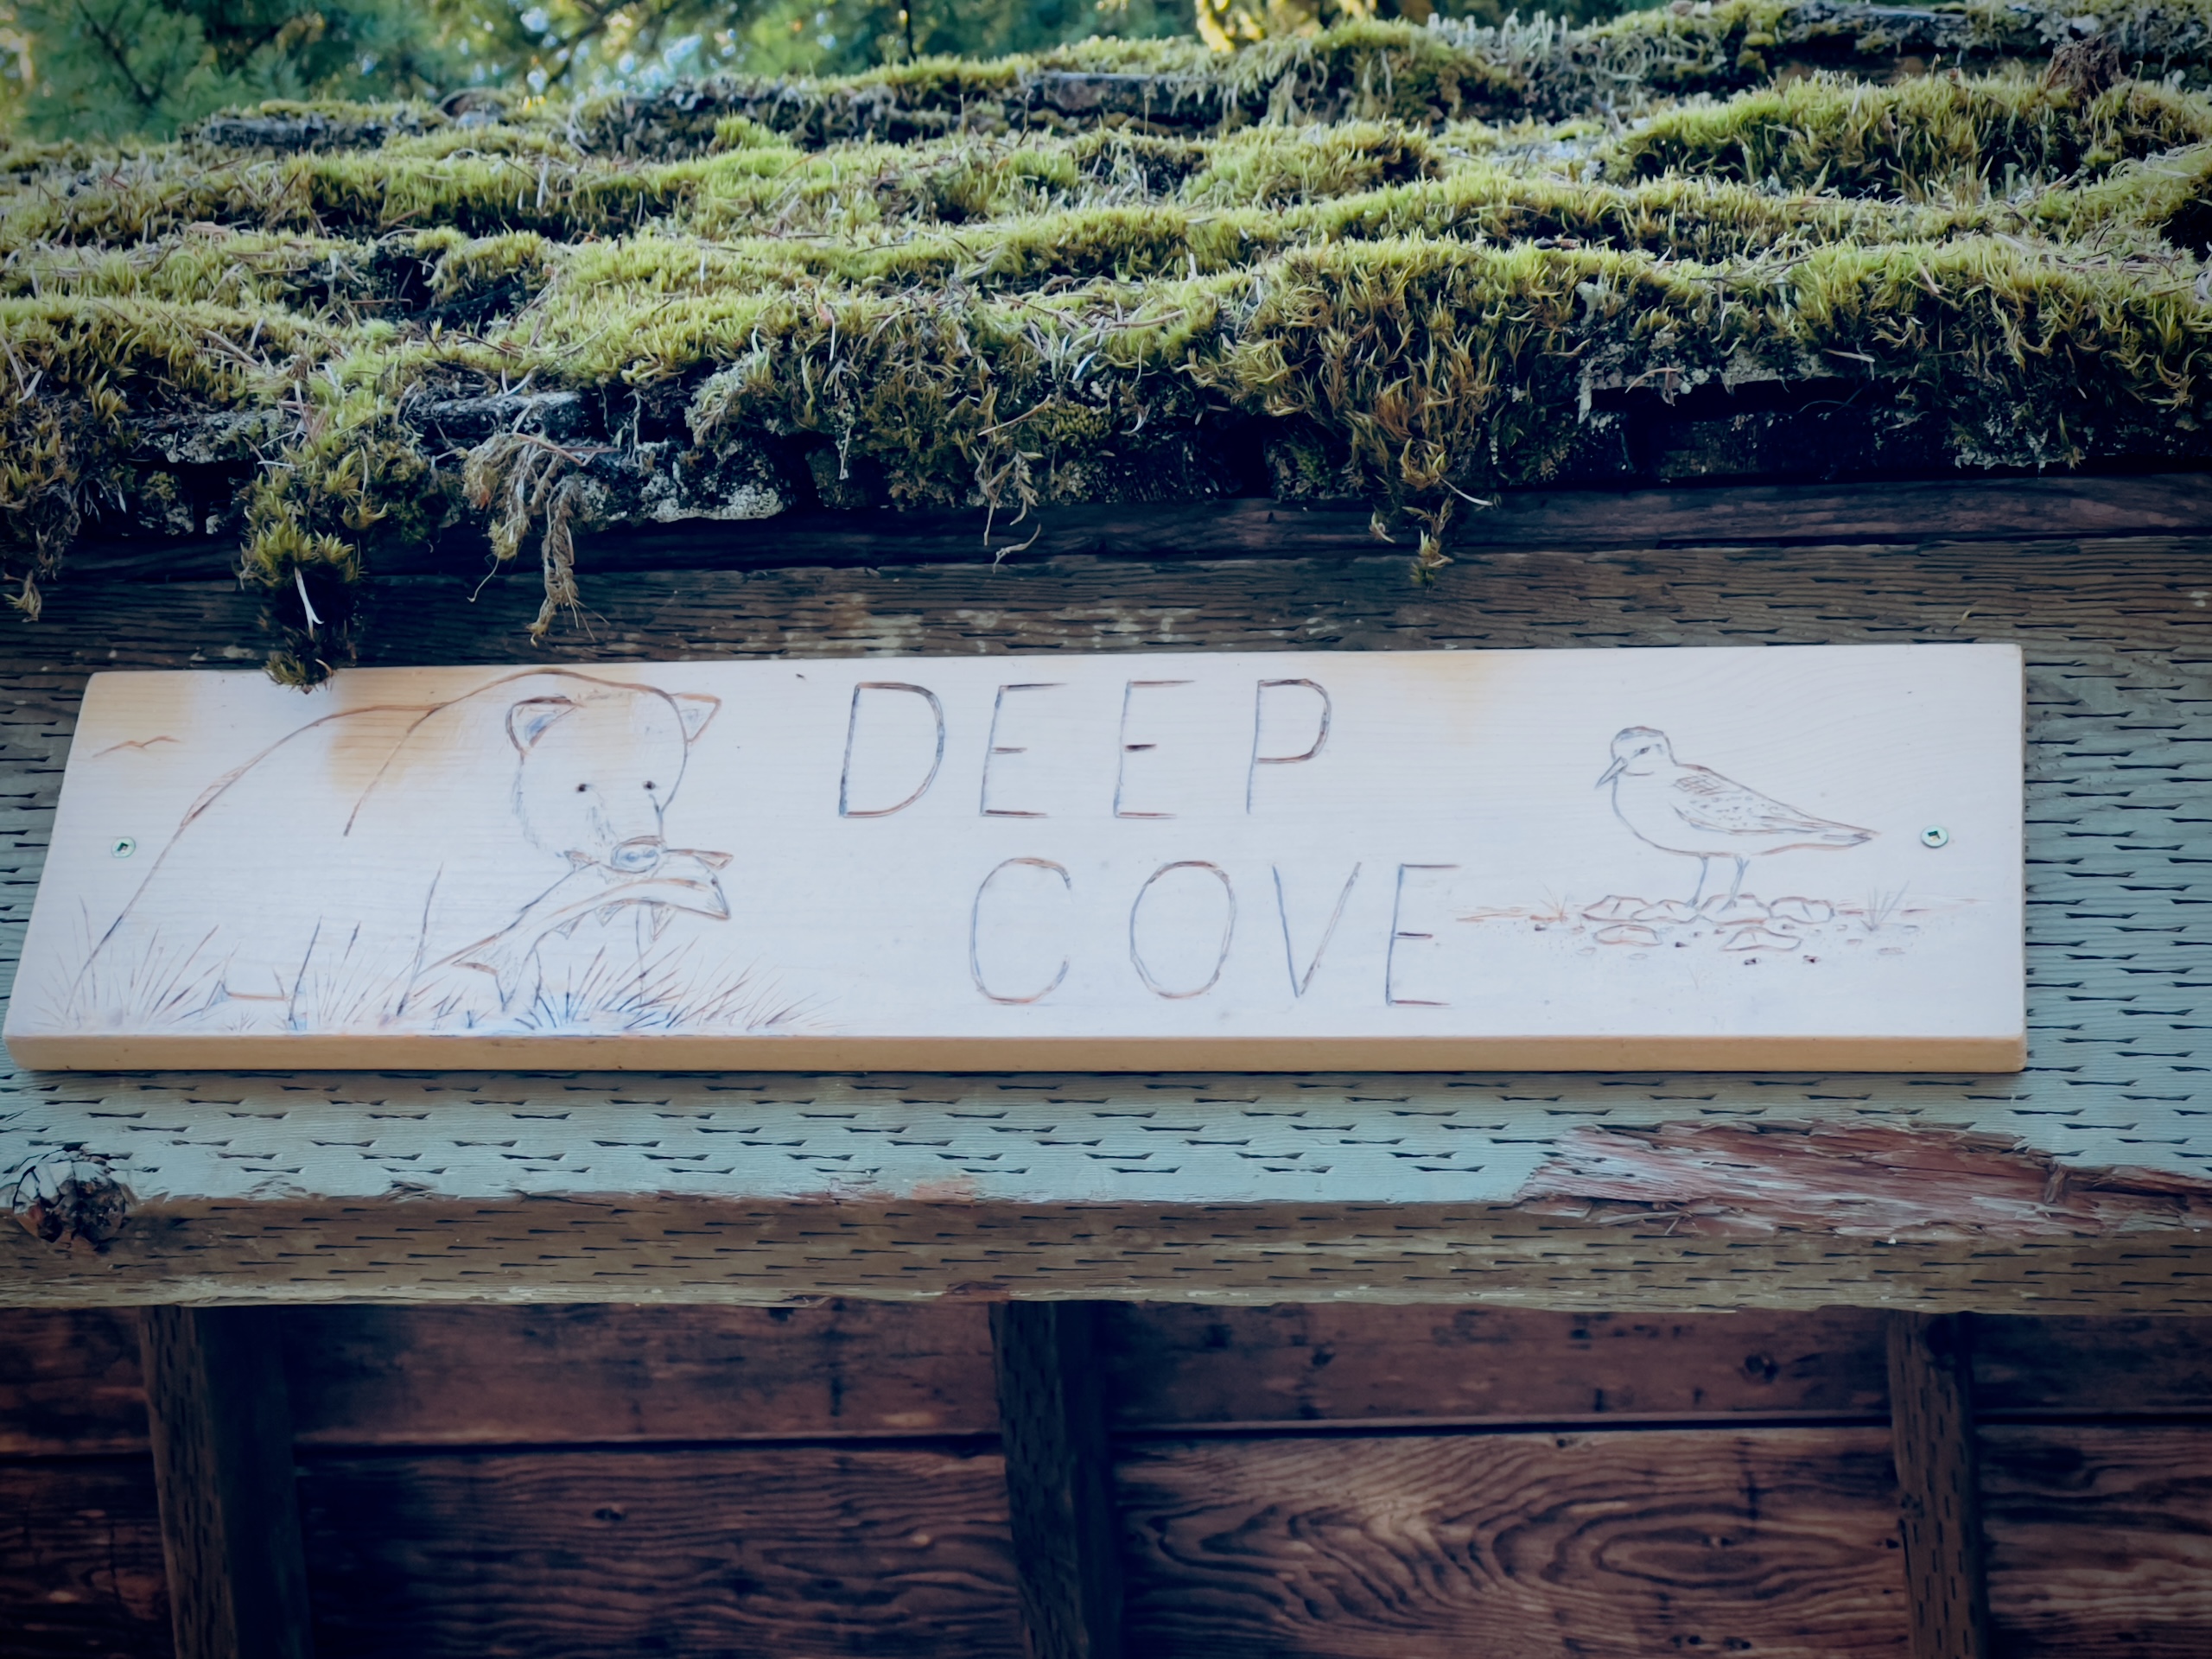 DEEP
COVE